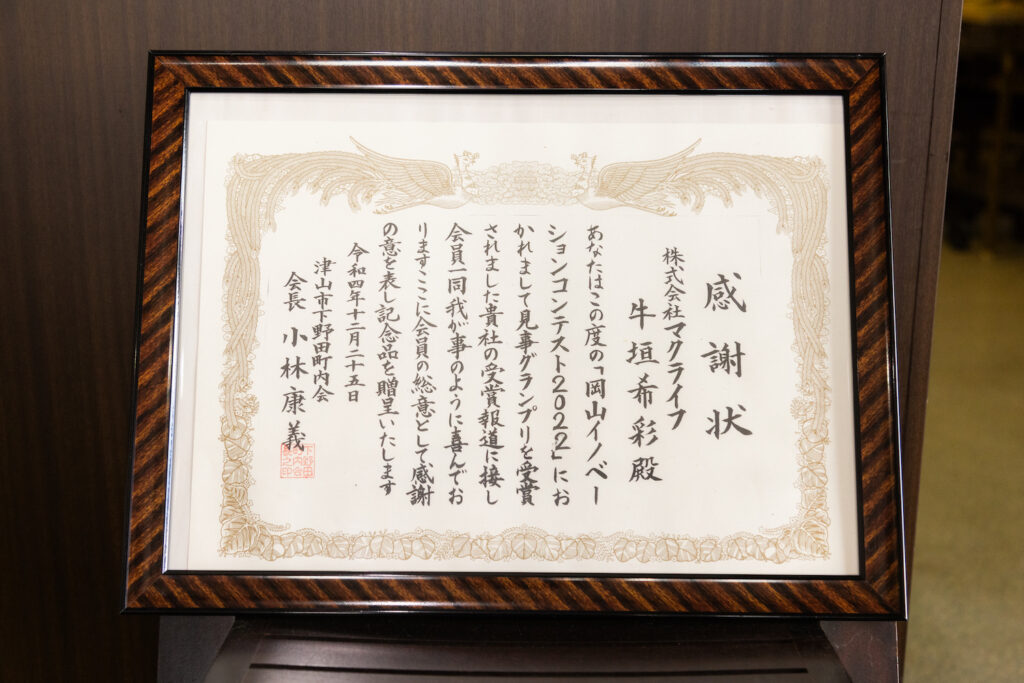 感謝状
株式会社マクライフ
牛垣希彩殿
あなたはこの度の「岡山イノベー
ションコンテスト2022」にお
かれまして見事グランプリを受賞
されました貴社の受賞報道に接し
会員一同我が事のように喜んでお
りますここに会員の総意として感謝
の意を表し記念品を贈呈いたします
令和四年十二月二十五日
津山市下野田町内会
会長 小林康義